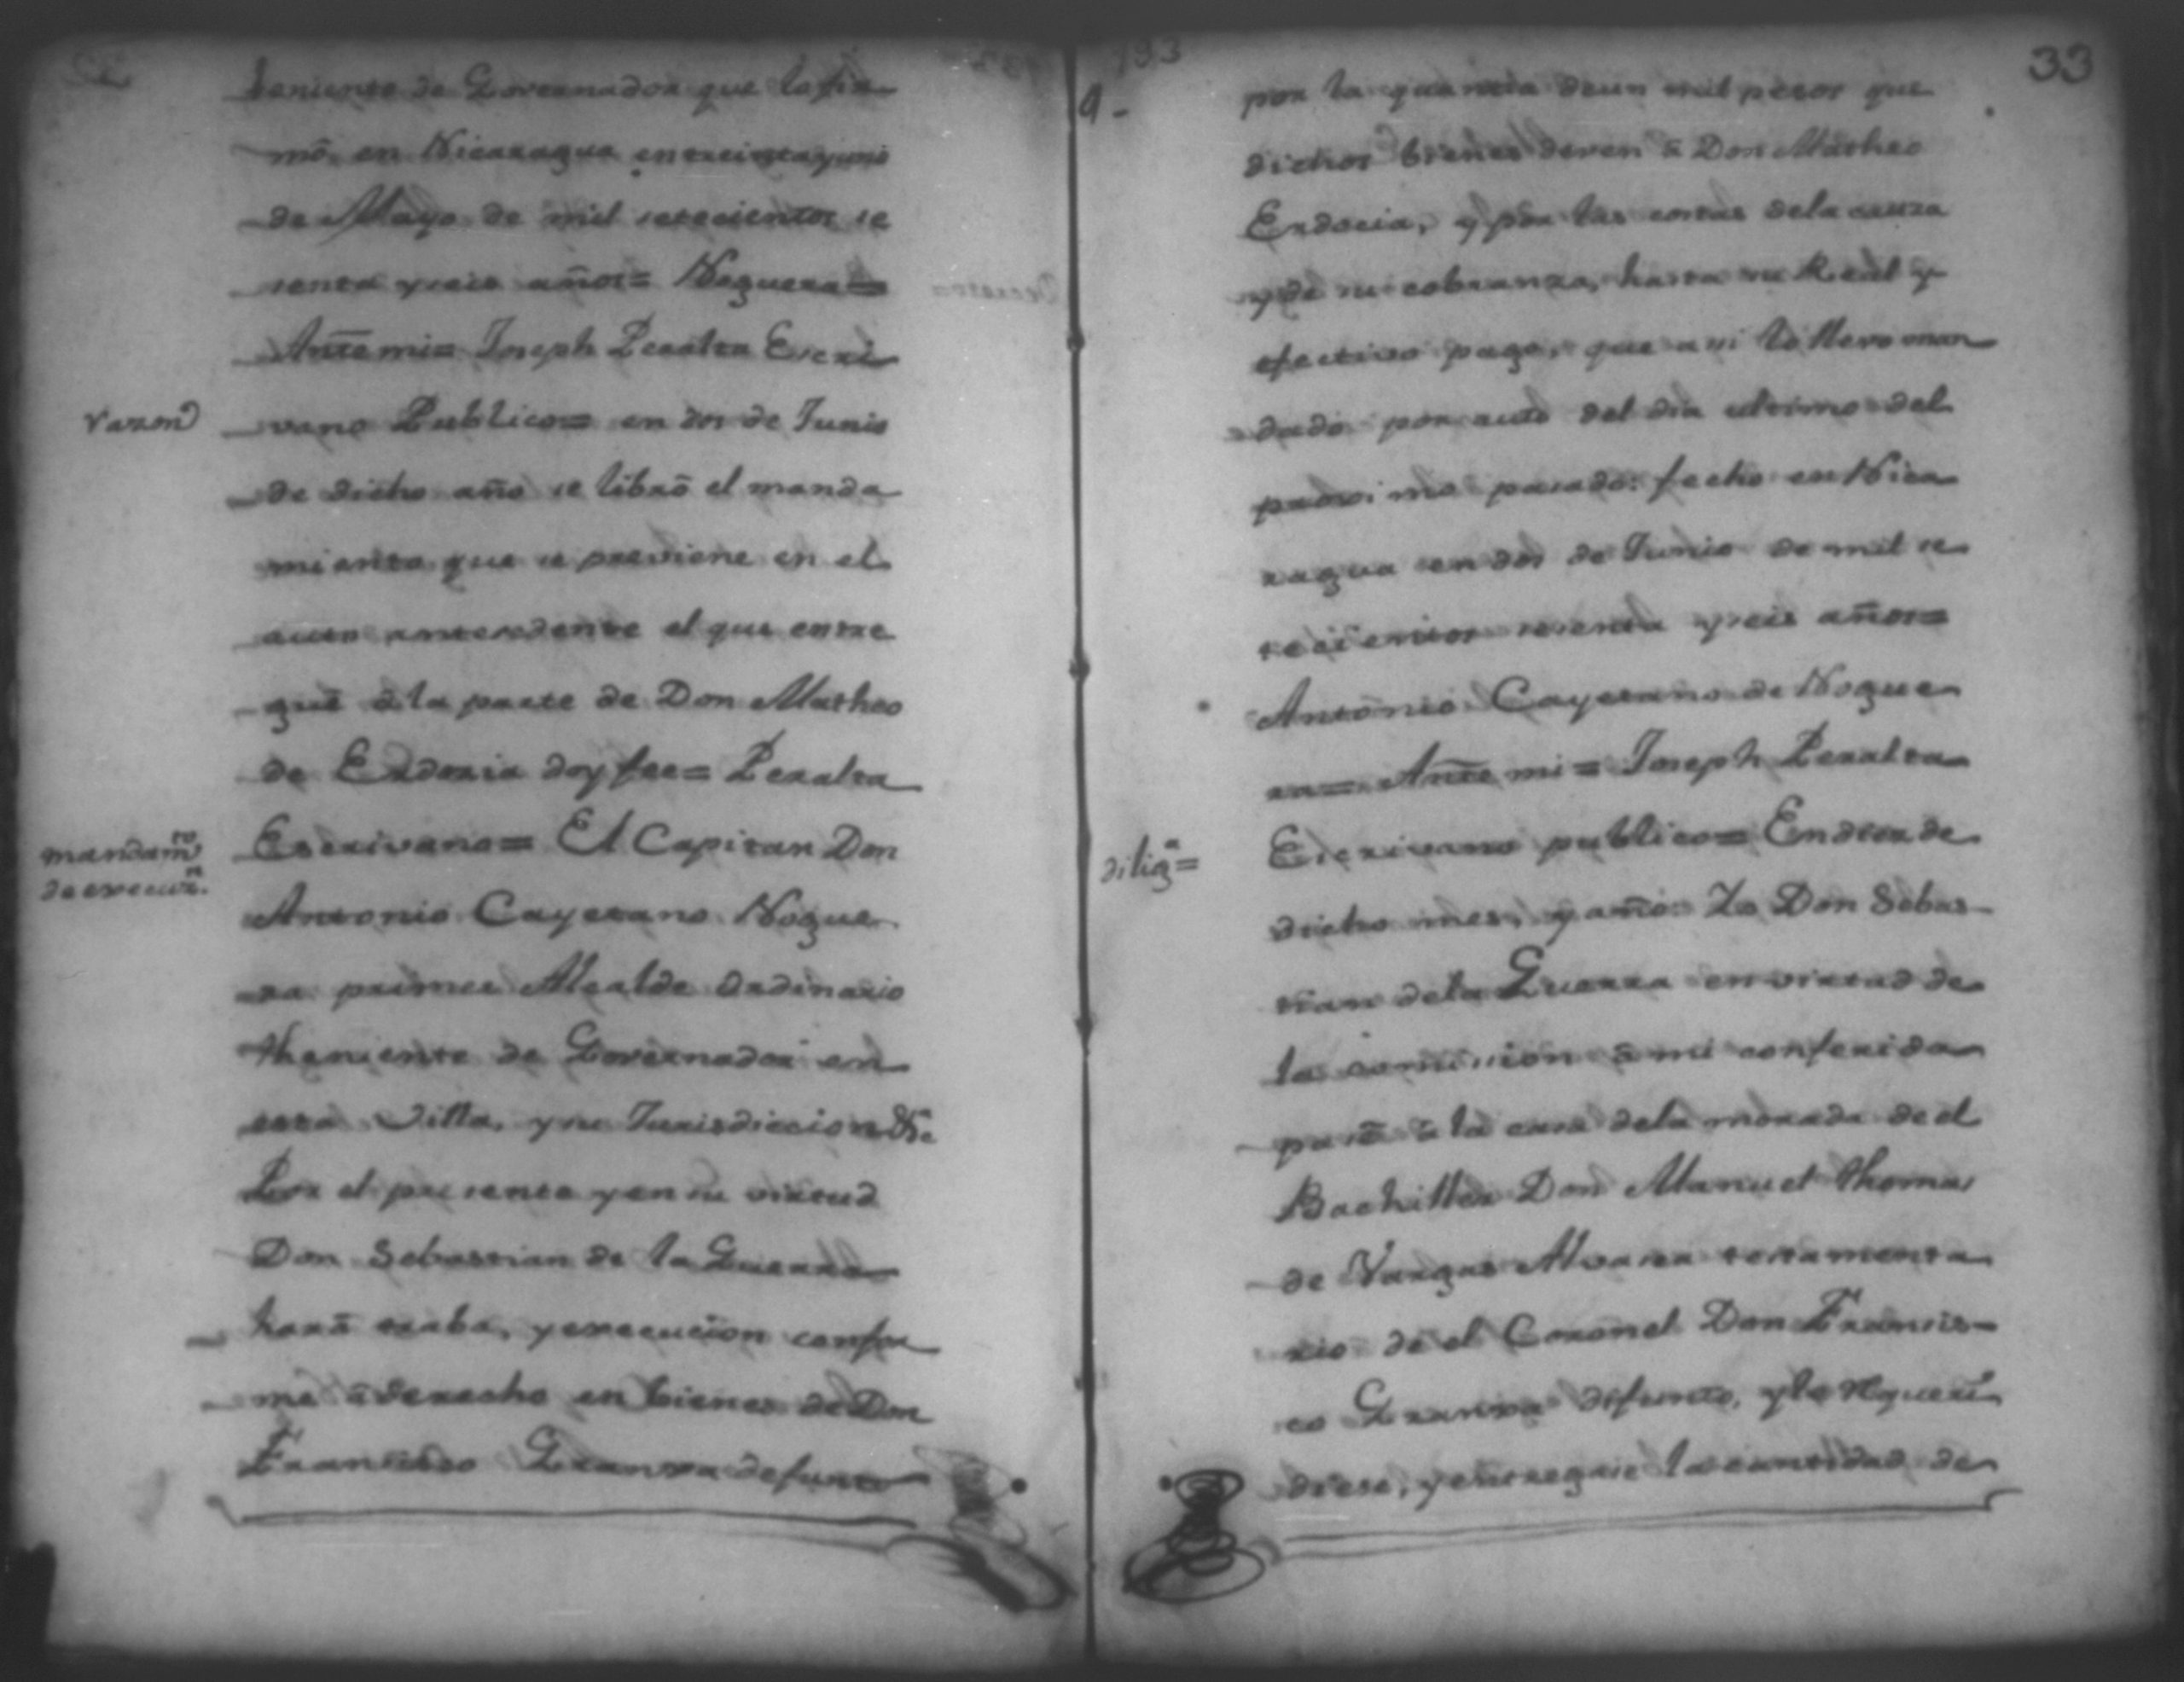 theniente de Governador que lo fir
mó, en Nicaragua en treinta y uno
de Mayo de mil setecientos se
senta y seis años= Noguera=
Antemi= Joseph Peralta Escri
Razon
vano Publico= en dos de Junio
de dicho año se libró el manda
miento que se previene en el
auto antesedente el que entre
gué á la parte de Don Matheo
de doy fee= Peralta
mandam.to
de execuc.n
Escrivano= El Capitan Don
Antonio Cayetano Nogue
ra primer Alcalde Ordinario
theniente de Governador en
esta Villa, y su Jurisdiccion &c.
Por el presente y en su virtud
Don Sebastian de la Guerra
hará traba, y execucion confor
me á derecho en bienes de Don
Francisco defunto
33
por la quantia de un mil pesos que
dichos bienes deven á Don Matheo
y por las costas dela causa
y de su cobranza, hasta su Real y
efectivo pago, que assi lo llevo man
dado por auto del dia ultimo del
proximo pasado: fecho en Nica
ragua en dos de Junio de mil se
tecientos sesenta y seis años=
Antonio Cayetano de Nogue
ra= Antemi= Joseph Peralta
dilig.a=
Escrivano publico= En dicho
dicho mes, y año: Yo Don Sebas
tian dela Guerra en virtud de
la comission á mi conferida
pasé á la casa dela morada de el
Bachiller Don Manuel Thomas
de Vargas testamenta
rio de el Coronel Don Francis
co difunto, y le requerí
diese, y entregase la cantidad de